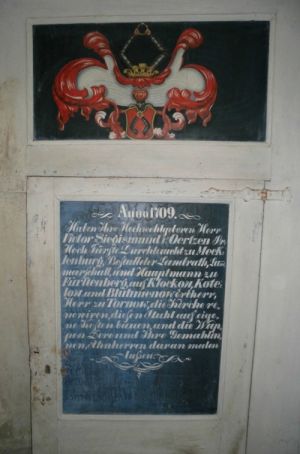 Anno 1709.
Haben Ihr Hochwohlgeboren Herr
Victor Siegismund v. Oertzen Sr
Hoch Fürstl. Durchlaucht zu Meck-
lenburg, Bestallter Landrath, La
marschall, und Hauptmann zu
Fürstenberg, auf Klockow, Kote-
low und Blumenow Erbherr,
Herr zu Tornow, die Kirche re-
noviren, diesen Stuhl auf eige-
ne Kosten bauen, und die Wap-
pen Dero und Ihre Gemahlin-
nen, Ahnherren daran malen
laßen.